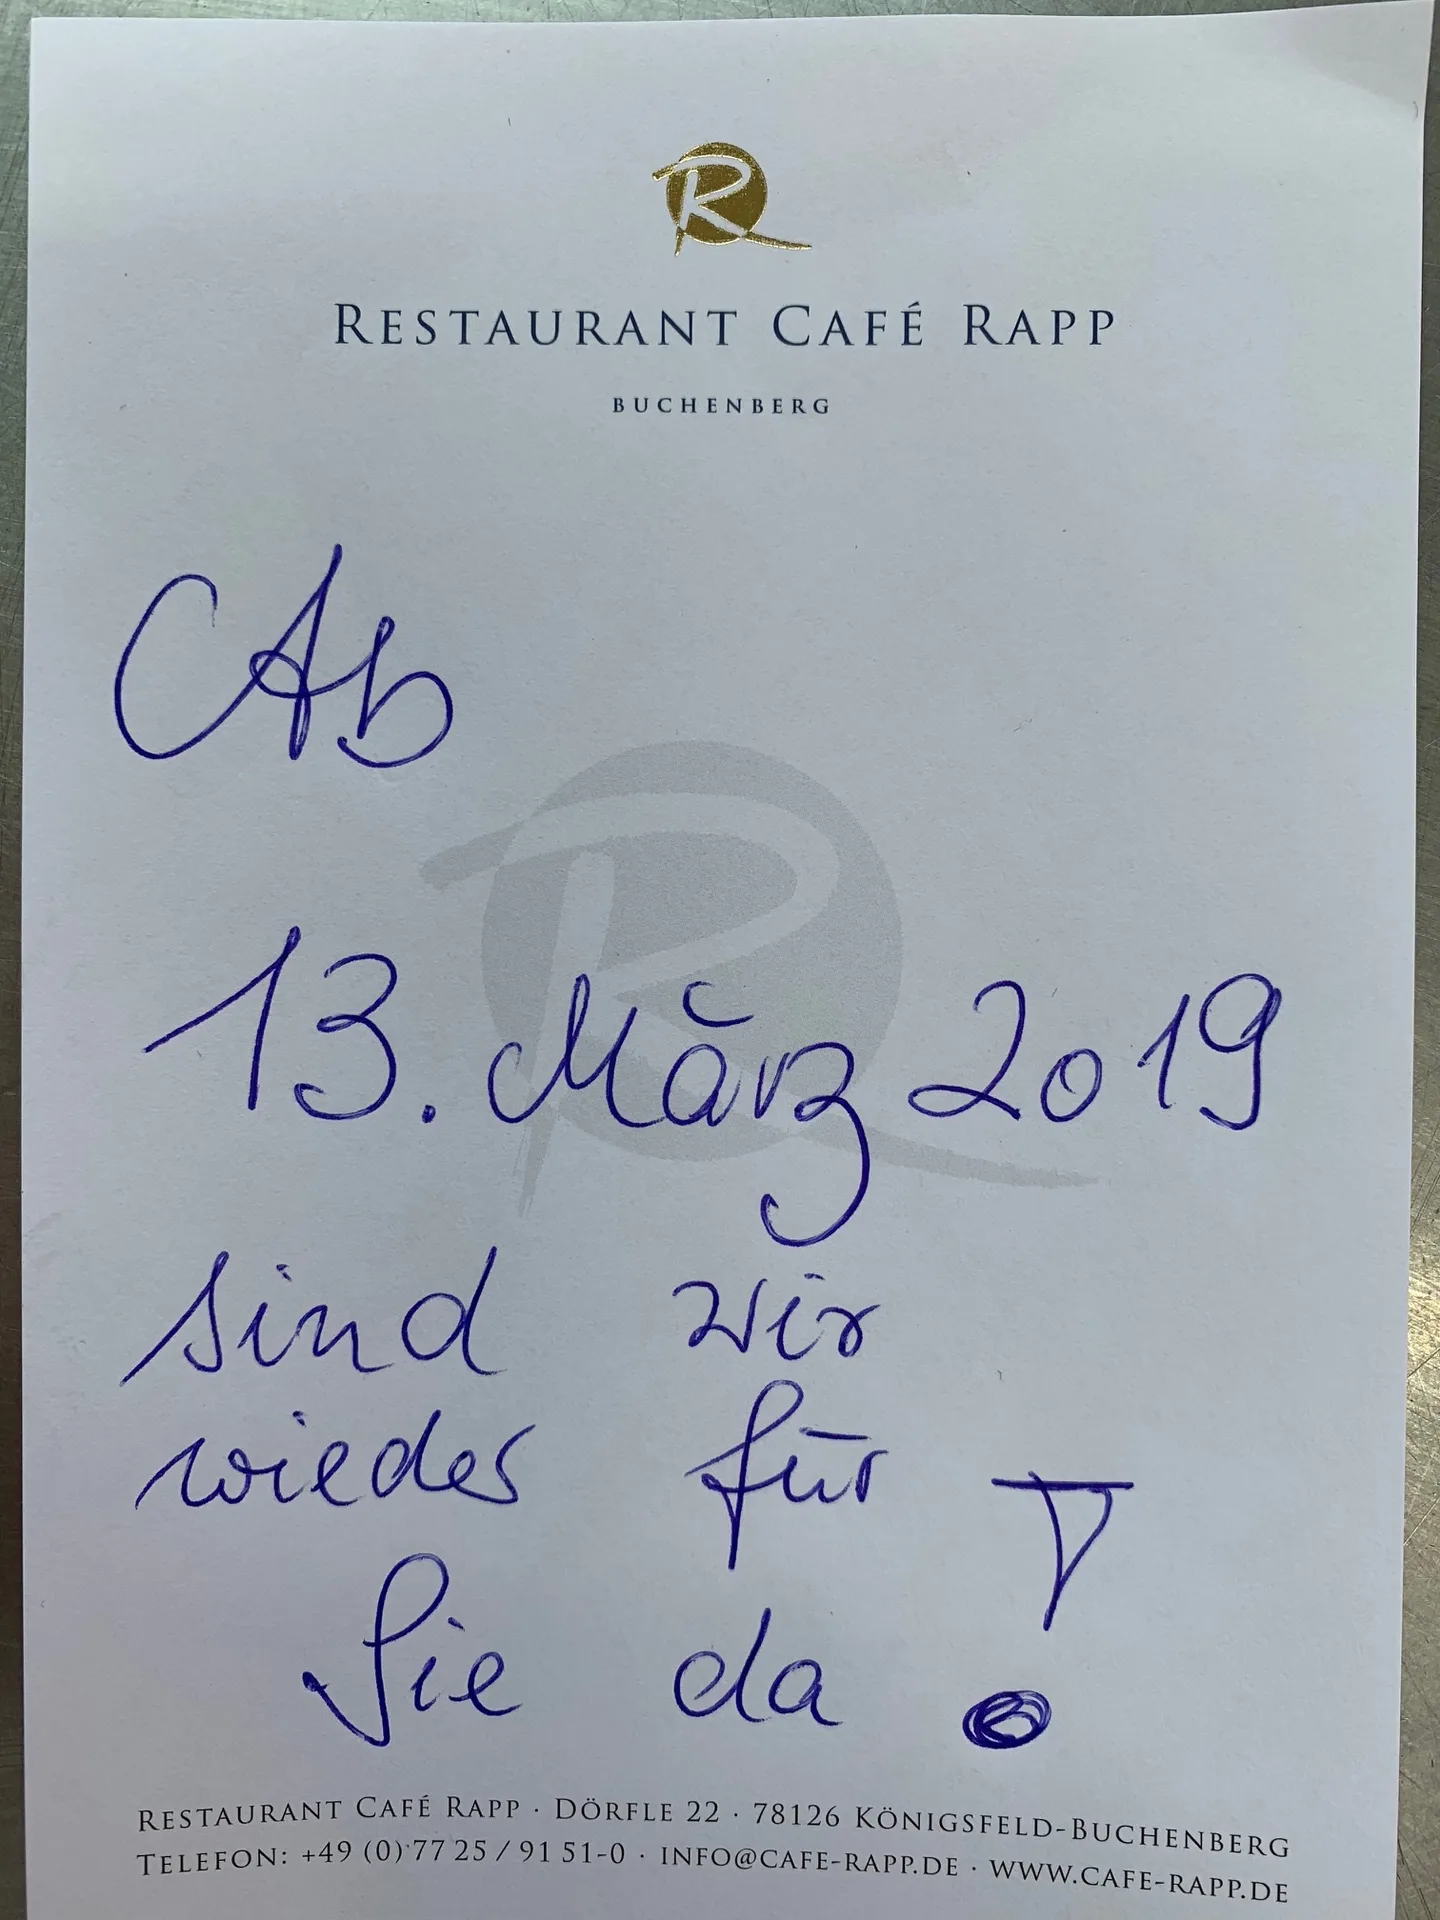 R
RESTAURANT CAFÉ RAPP
BUCHENBERG
Ab
13. März 2019
sind wir
wieder für
Sie da !
RESTAURANT CAFÉ RAPP · DÖRFLE 22 · 78126 KÖNIGSFELD-BUCHENBERG
TELEFON: +49 (0) 77 25 / 91 51-0 · INFO@CAFE-RAPP.DE · WWW.CAFE-RAPP.DE